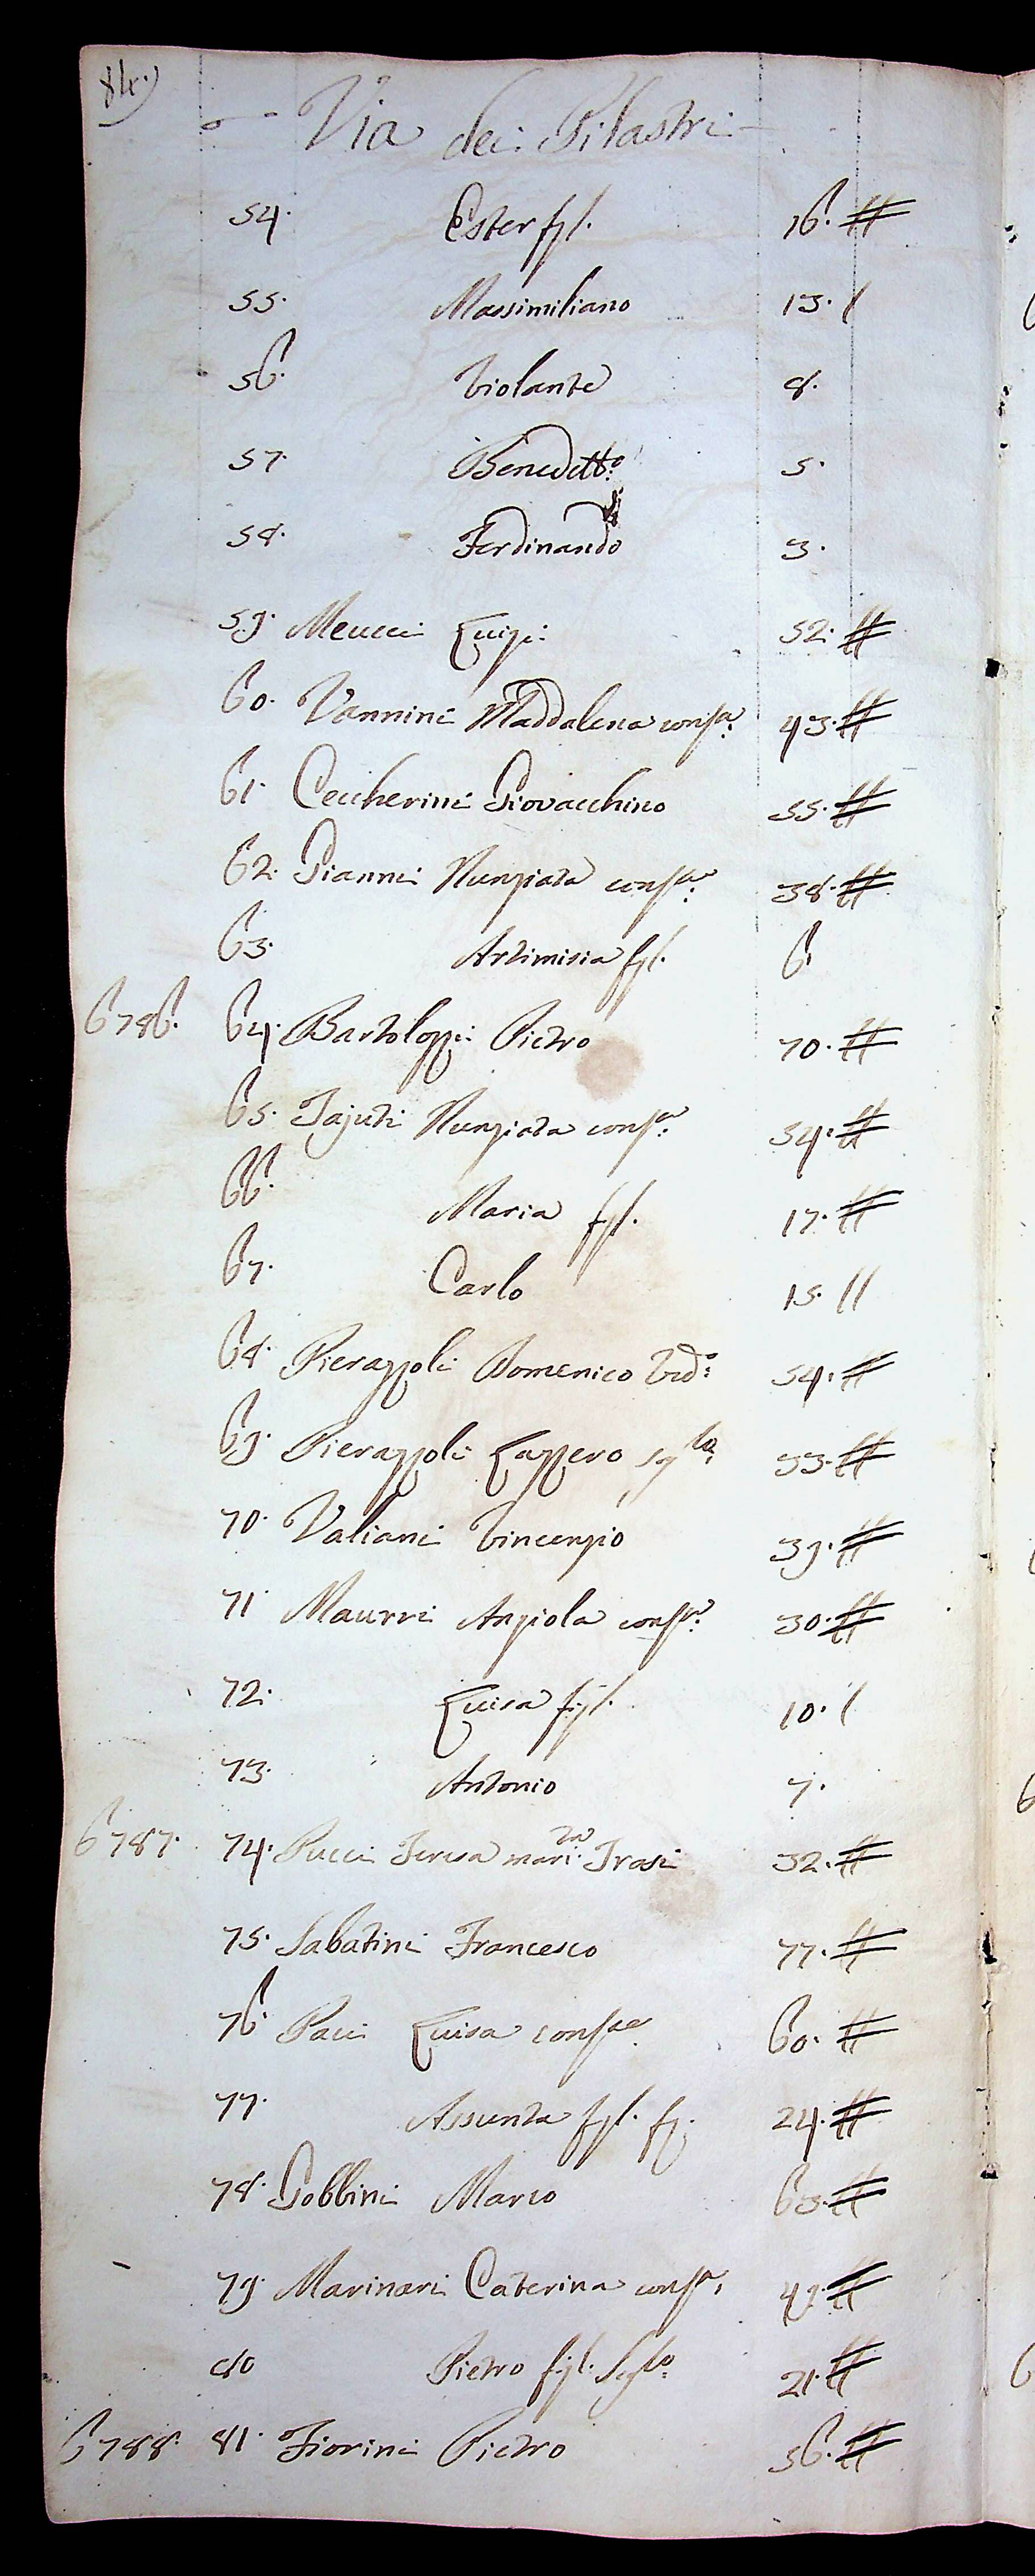 84.)
Via dei Pilastri
54. Ester fgl. 16.
55. Massimiliano 13.
56. Violante 8.
57. Benedetto 5.
58. Ferdinando 3.
59. Meucci Luigi 52.
60. Vannini Maddalena consa. 43.
61. Ceccherini Giovacchino 55.
62. Gianni Nunziata consa. 38.
63. Artimisia fgl. 6.
6786. 64. Bartolozzi Pietro 70.
65. Tajuti Nunziata consa. 34.
66. Maria fgl. 17.
67. Carlo 15.
68. Pierazzoli Domenico Vedo. 54.
69. Pierazzoli Lazzero sglo. 33.
70. Valiani Vincenzio 39.
71. Maurri Angiola consa. 30.
72. Luisa figl. 10.
73. Antonio 7.
6787. 74. Pucci Teresa marita Trasi 32.
75. Sabatini Francesco 77.
76. Paci Luisa consa. 60.
77. Assunta fgl. fg. 24.
78. Gobbini Marco 63.
79. Marinari Caterina consa. 49.
80 Pietro figl. Sglo. 21.
6788. 81. Fiorini Pietro 56.